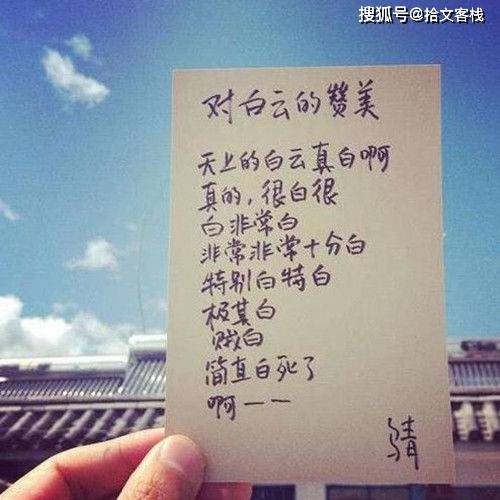 搜狐号@拾文客栈
对白云的赞美
天上的白云真白啊
真的，很白很
白非常白
非常非常十分白
特别白特白
极其白
贼白
简直白死了
啊——